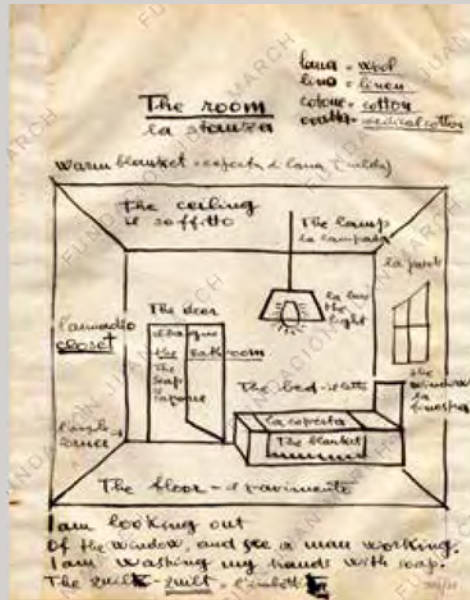 lana = wool
lino = linen
cotone = cotton
ovatta = medical cotton
The room
la stanza
Warm blanket = coperta di lana
The ceiling
il soffitto
The lamp
la lampada
la luce
the light
l'armadio
closet
The door
the bathroom
The soap
il sapone
the window
la finestra
The bed - il letto
la coperta
The blanket
corner
The floor - il pavimento
I am looking out
of the window, and see a man working.
I am washing my hands with soap.
The quilt - quilt -
FUNDACION JUAN MARCH